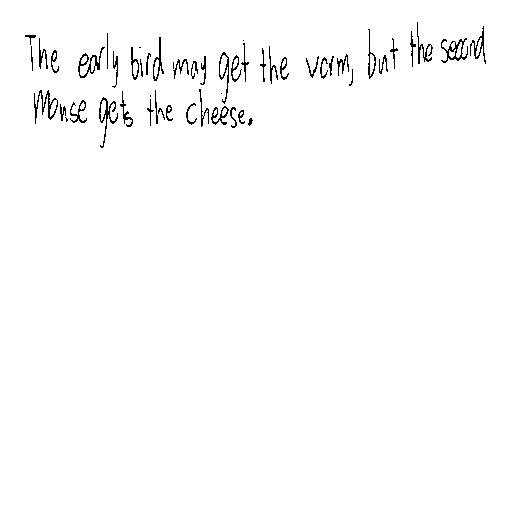 The early bird may get the vorm, but the second
mouse gets the cheese.